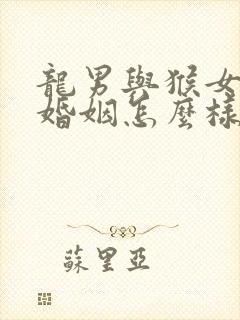 龍男與猴女
婚姻怎麼樣
蘇里亞